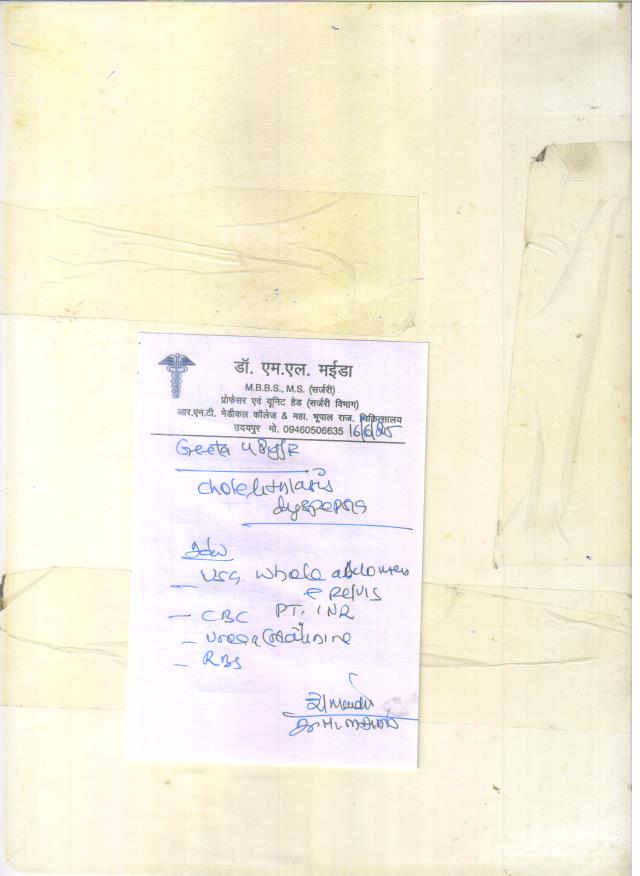 डॉ. एम.एल. मईडा
M.B.B.S., M.S. (सर्जरी)
प्रोफेसर एवं यूनिट हेड (सर्जरी विभाग)
आर.एन.टी. मेडीकल कॉलेज & महा. भूपाल राज. चिकित्सालय
उदयपुर मो. 09460506635 16/6/25
Geeta
Cholelithiasis
dyspepsia
Adv
- USG whole abdomen
e Pelvis
- CBC PT, INR
- Urea Creatinine
- RBS